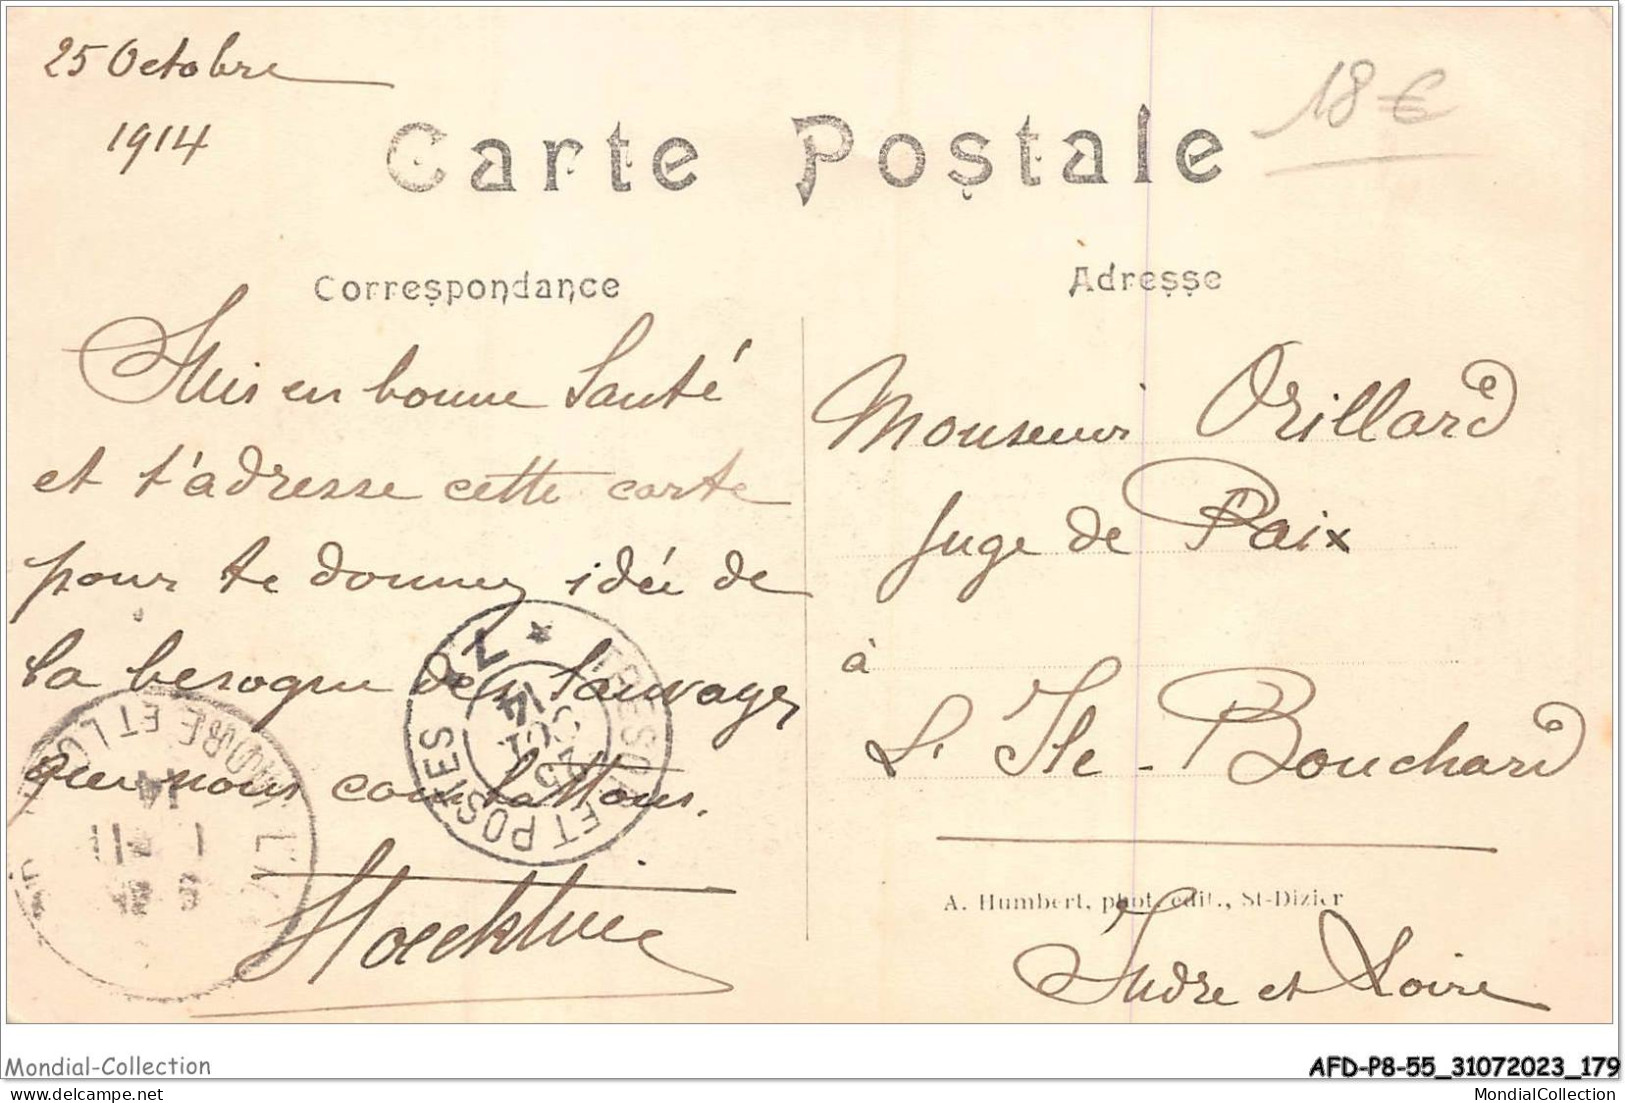 25 Octobre
1914
18 €
Carte Postale
Correspondance
Adresse
Suis en bonne Santé
et t'adresse cette carte
pour te donner idée de
la besogne des Sauvages
que nous combattons.
Monsieur Orillard
Juge de Paix
à
L'Ile-Bouchard
Indre et Loire
A. Humbert, phot. édit., St-Dizier
TRESOR ET POSTES
25
OCT
14
INDRE ET LOIRE
Mondial-Collection
AFD-P8-55_31072023_179
MondialCollection